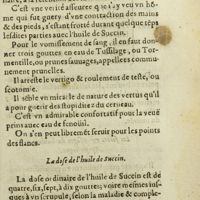 C'est vne verité asseuree que i'ay veu vn hõ-
me qui fut guery d'vne contraction des mains
& des pieds, s'estant frotté durant quelque tẽps
lesdites parties auec l'huile de Succin.
Pour le vomissement de sang, il en faut don-
ner trois gouttes en eau de Tussilage, ou Tor-
mentille, ou prunes sauuages, appellees commu-
nement prunelles.
Il arreste le vertigo & roulement de teste, ou
scotomie.
Il sẽble vn miracle de nature des vertus qu'il
a pour guerir des stupiditez du cerueau.
C'est vn admirable confortatif pour la veuë
prins auec eau de fenouil.
On s'en peut librement seruir pour les points
des flancs.
La dose de l'huile de Succin.
La dose ordinaire de l'huile de Succin est de
quatre, six, sept, à dix gouttes; voire mesmes ius-
ques à vn scrupule, selon la maladie & comple-